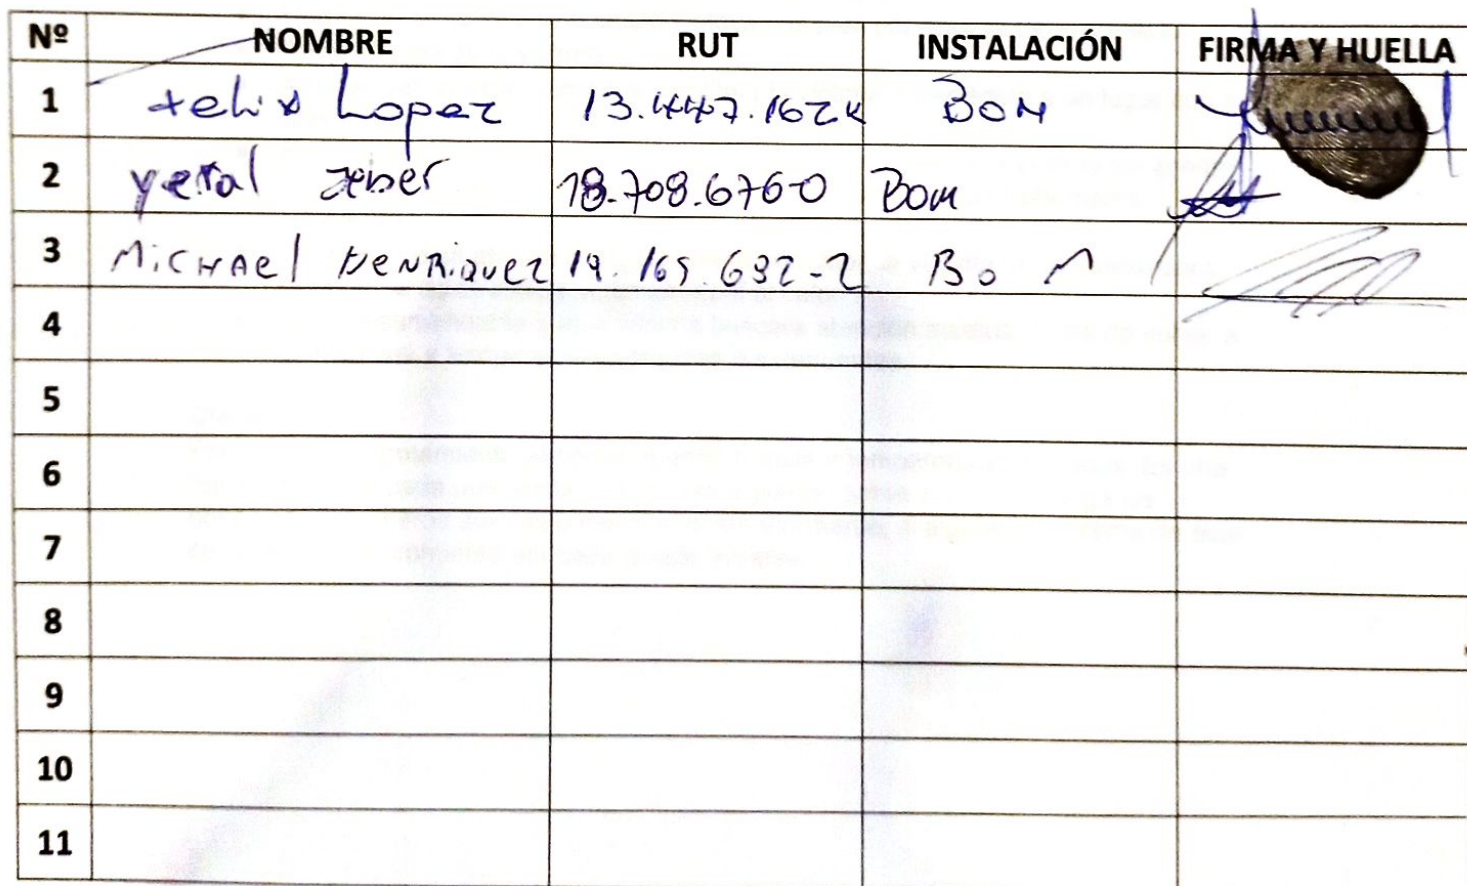 Nº NOMBRE RUT INSTALACIÓN FIRMA Y HUELLA
1 Felix Lopez 13.447.162K BOM
2 yeral 18.708.676-0 BOM
3 MicHAel HENRiquez 19.169.692-2 BO M
4
5
6
7
8
9
10
11